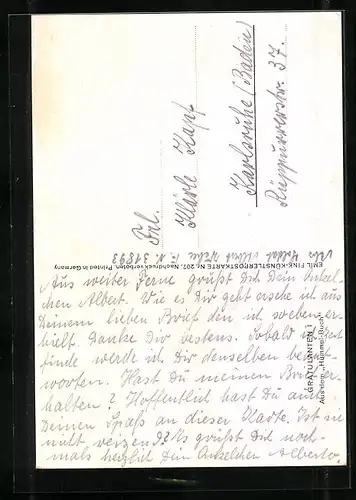 Frl.
Klärle Kapf
Karlsruhe (Baden)
Rüppurrerstr. 37.
Albert F. N 31893
EMIL FINK-KÜNSTLERPOSTKARTE Nr. 202, Nachdruck verboten. Printed in Germany
GRATULANTEN I
Aus dem „Hummel-Buch“
Aus weiter Ferne grüßt Dich Dein Onkel-
chen Albert. Wie es Dir geht ersehe ich aus
Deinem lieben Brief den ich soeben er-
hielt. Danke Dir bestens. Sobald ich Zeit
finde werde ich Dir denselben bean-
worten. Hast Du meinen Brief er-
halten? Hoffentlich hast Du auch
Deinen Spaß an dieser Karte. Ist sie
nicht reizend? Es grüßt Dich noch-
mals herzlich Dein Onkelchen Alberto.